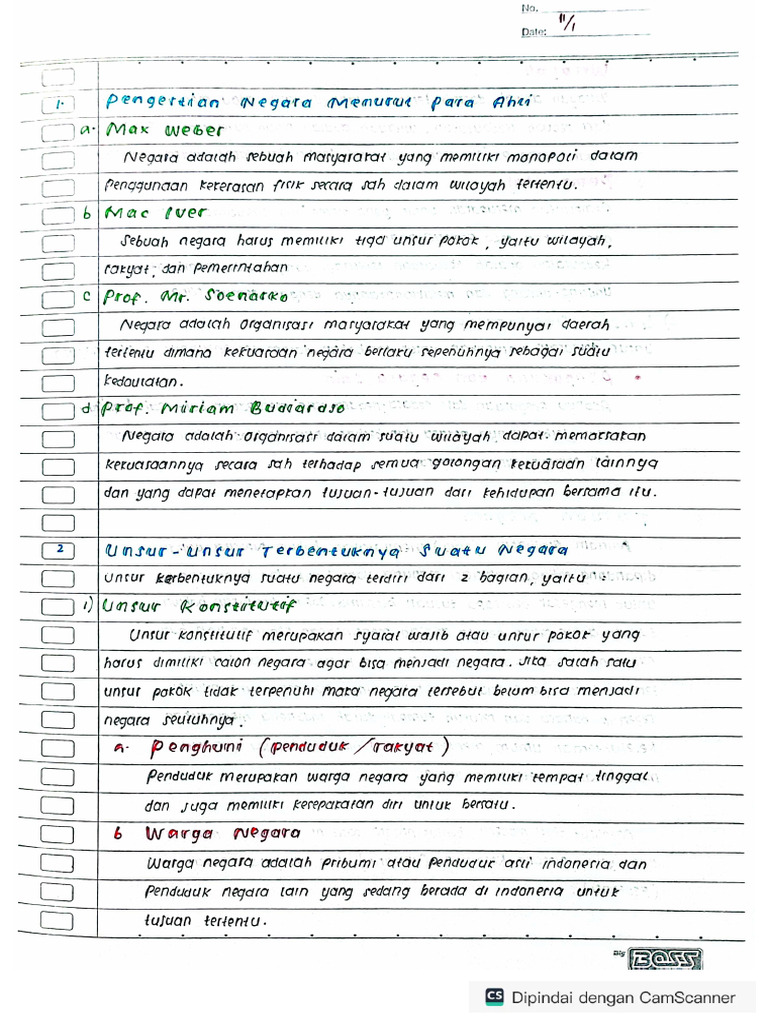 No.
Date: 11/1
1. Pengertian Negara Menurut Para Ahli
a. Max Weber
Negara adalah sebuah masyarakat yang memiliki monopoli dalam
penggunaan kekerasan fisik secara sah dalam wilayah tertentu.
b Mac Iver
Sebuah negara harus memiliki tiga unsur pokok, yaitu wilayah,
rakyat, dan pemerintahan
c Prof. Mr. Soenarko
Negara adalah organisasi masyarakat yang mempunyai daerah
tertentu dimana kekuasaan negara berlaku sepenuhnya sebagai suatu
kedaulatan.
d. Prof. Miriam Budiardjo
Negara adalah organisasi dalam suatu wilayah dapat memaksakan
kekuasaannya secara sah terhadap semua golongan kekuasaan lainnya
dan yang dapat menetapkan tujuan-tujuan dari kehidupan bersama itu.
2 Unsur-unsur Terbentuknya Suatu Negara
Unsur terbentuknya suatu negara terdiri dari 2 bagian, yaitu :
1) Unsur Konstitutif
Unsur konstitutif merupakan syarat wajib atau unsur pokok yang
harus dimiliki calon negara agar bisa menjadi negara. Jika salah satu
unsur pokok tidak terpenuhi maka negara tersebut belum bisa menjadi
negara seutuhnya.
a. Penghuni (penduduk/rakyat)
Penduduk merupakan warga negara yang memiliki tempat tinggal
dan juga memiliki kesepakatan diri untuk bersatu.
b Warga Negara
Warga negara adalah pribumi atau penduduk asli indonesia dan
penduduk negara lain yang sedang berada di indonesia untuk
tujuan tertentu.
Big BOSS
CS Dipindai dengan CamScanner